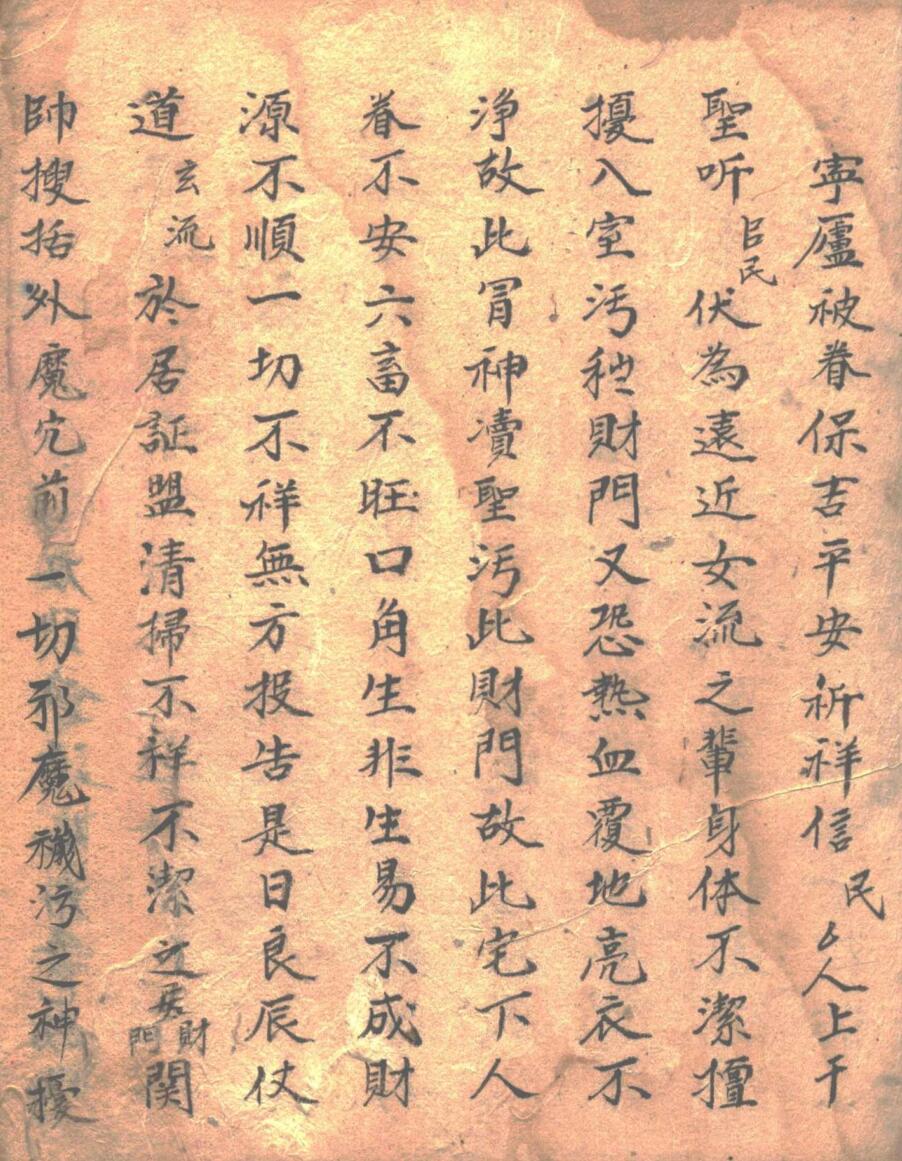 寕廬被眷保吉平安祈祥信民厶人上干
聖听臣民伏為遠近女流之輩身体不潔擅
擾入室污秽財門又恐熱血覆地亮衣不
浄故此冒神凟聖污此財門故此宅下人
眷不安六畜不旺口角生非生易不成財
源不順一切不祥無方投告是日良辰仗
道玄流於居証盟清掃不祥不潔之炁財門関
帥搜括外魔宄前一切邪魔穢污之神擾